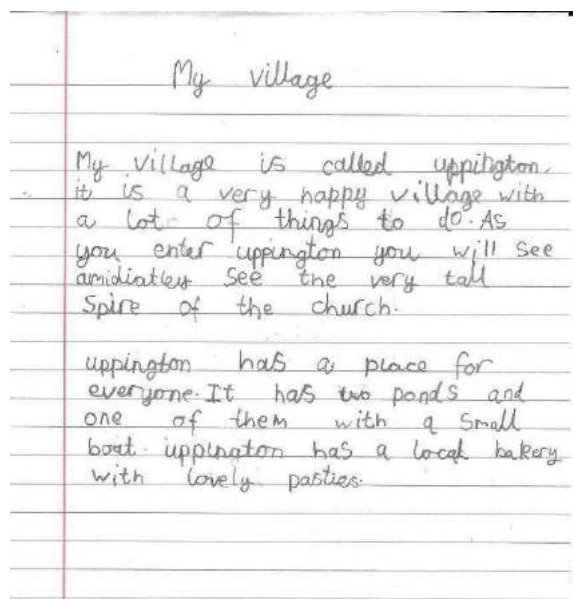 My village
My village is called uppington.
it is a very happy village with
a lot of things to do. As
you enter uppington you will see
amidiatley see the very tall
Spire of the church.
uppington has a place for
everyone. It has two ponds and
one of them with a small
boat. uppington has a local bakery
with lovely pasties.